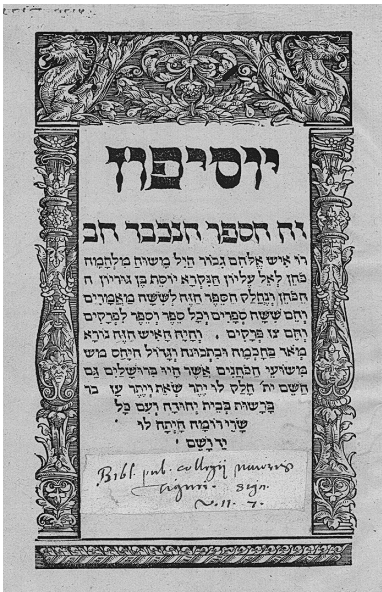 יוסיפון
זה הספר הנכבד חב
רו איש אלהים גבור חיל משוח מלחמה
כהן לאל עליון הנקרא יוסף בן גוריון ה
הכהן ונחלק הספר הזה לששה מאמרים
והם ששה ספרים וכל ספר וספר לפרקים
והם צז פרקים . והיה האיש הזה נורא
מאד בחכמה ובתבונה וגדול היחס מש
משועי הכהנים אשר היו בירושלים גם
השם ית' חלק לו יתר שאת ויתר עז בד
ברשות בבית יהודה ועם כל
שרי רומה היתה לו
יד ושם
Bibl. pub. collegij
V. 11. 7.